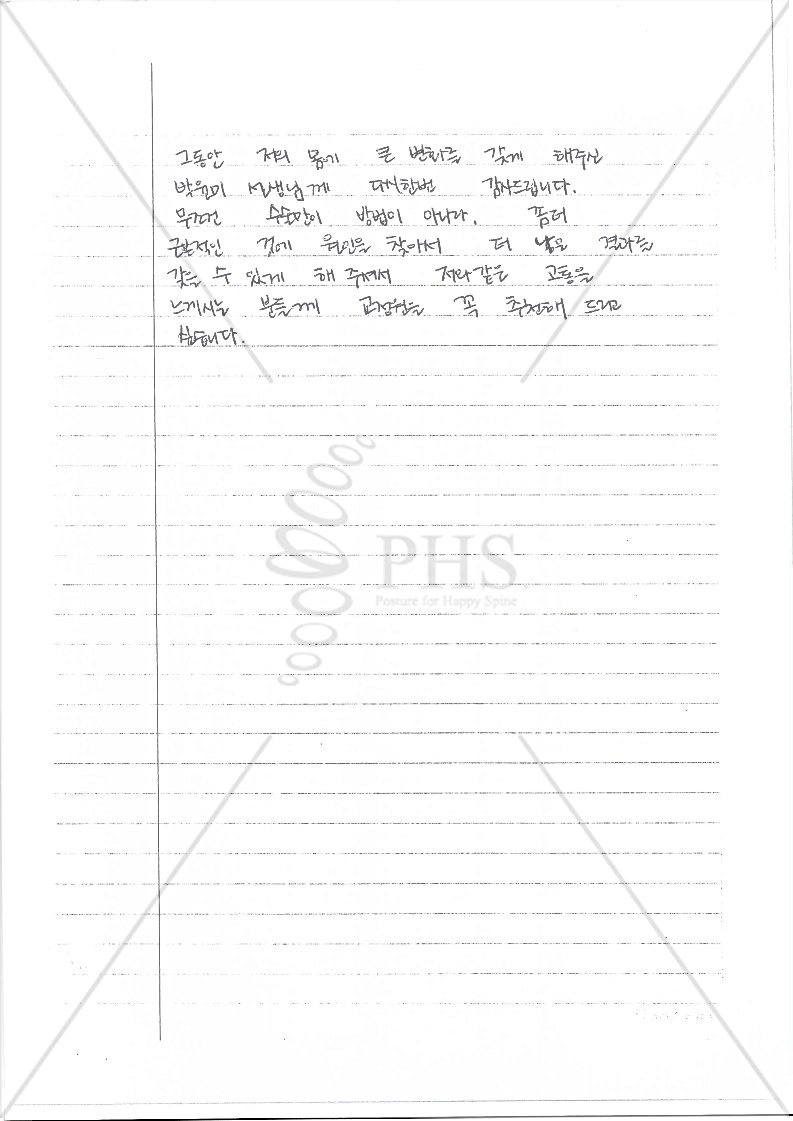 그동안 저의 몸에 큰 변화를 갖게 해주신
박원미 선생님께 다시한번 감사드립니다.
무조건 수술만이 방법이 아니라, 좀더
근본적인 것에 원인을 찾아서 더 낳은 결과를
갖을 수 있게 해 주셔서 저와같은 고통을
느끼시는 분들께 교정원을 꼭 추천해 드리고
싶습니다.
PHS
Posture for Happy Spine